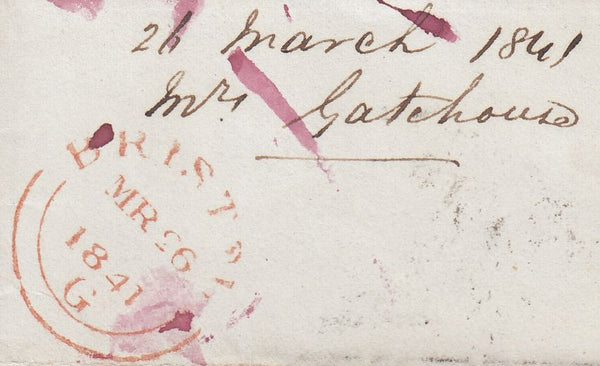 26 March 1841
Mrs Gatehouse
BRISTOL
MR 26
1841
G